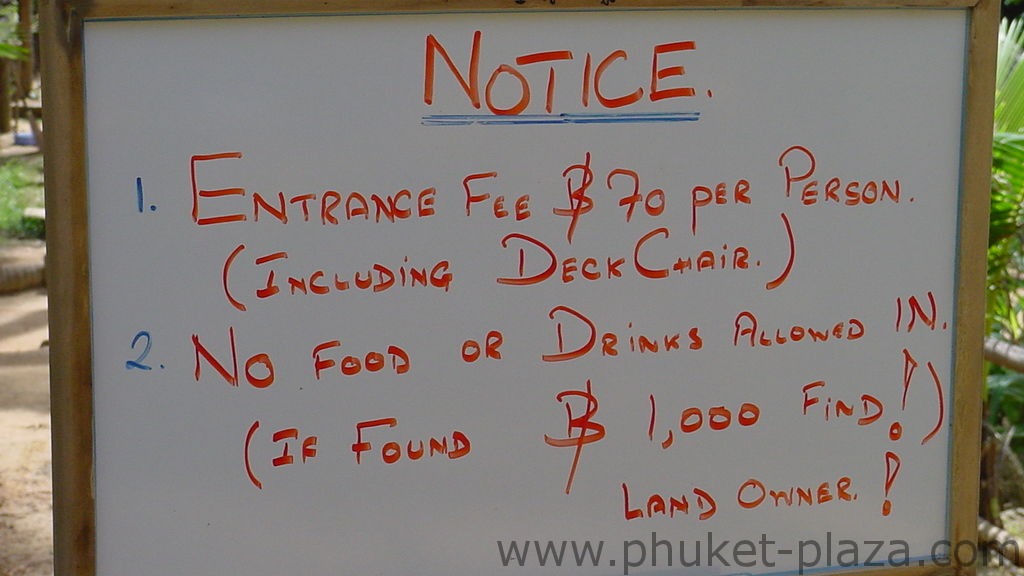 NOTICE.
1. ENTRANCE FEE ฿ 70 PER PERSON.
(INCLUDING DECK CHAIR.)
2. NO FOOD OR DRINKS ALLOWED IN.
(IF FOUND ฿ 1,000 FIND!)
LAND OWNER. !
www.phuket-plaza.com